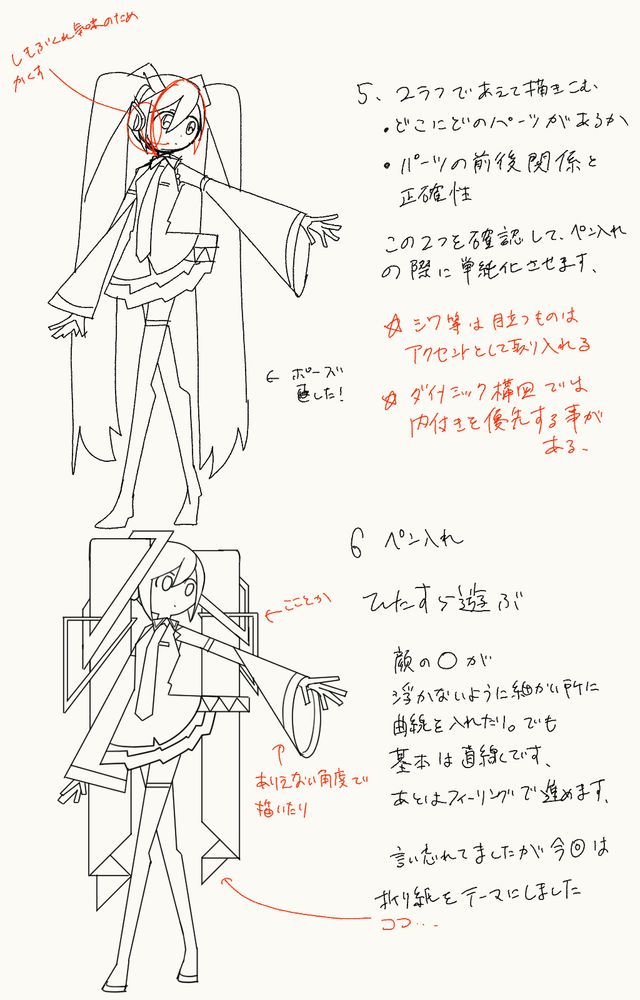 しもぶくれ気味のため
かくす
5、2ラフであえて描きこむ
・どこにどのパーツがあるか
・パーツの前後関係と
正確性
この2つを確認して、ペン入れ
の際に単純化させます、
☆シワ等は目立つものは
アクセントとして取り入れる
☆ダイナミック構図では
肉付きを優先する事が
ある、
← ポーズ
直した!
6 ペン入れ
ひたすら遊ぶ
← こことか
顔の○が
浮かないように細かい所に
曲線を入れたり。でも
基本は直線です、
あとはフィーリングで進めます、
ありえない角度で
描いたり
言い忘れてましたが今回は
折り紙をテーマにしました
ココ…